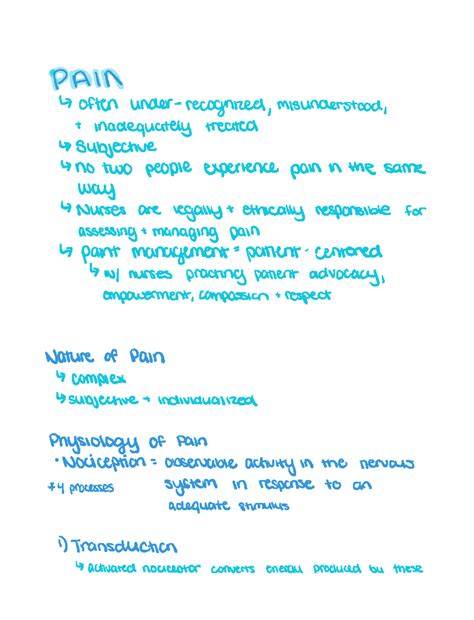 PAIN
↳ often under-recognized, misunderstood,
+ inadequately treated
↳ Subjective
↳ no two people experience pain in the same
way
↳ Nurses are legally + ethically responsible for
assessing + managing pain
↳ paint management = patient-centered
↳ w/ nurses practing patient advocacy,
empowerment, compassion + respect
Nature of Pain
↳ complex
↳ subjective + individualized
Physiology of Pain
• Nociception = observable activity in the nervous
*4 processes system in response to an
adequate stimulus
1) Transduction
↳ activated nociceptor converts energy produced by these